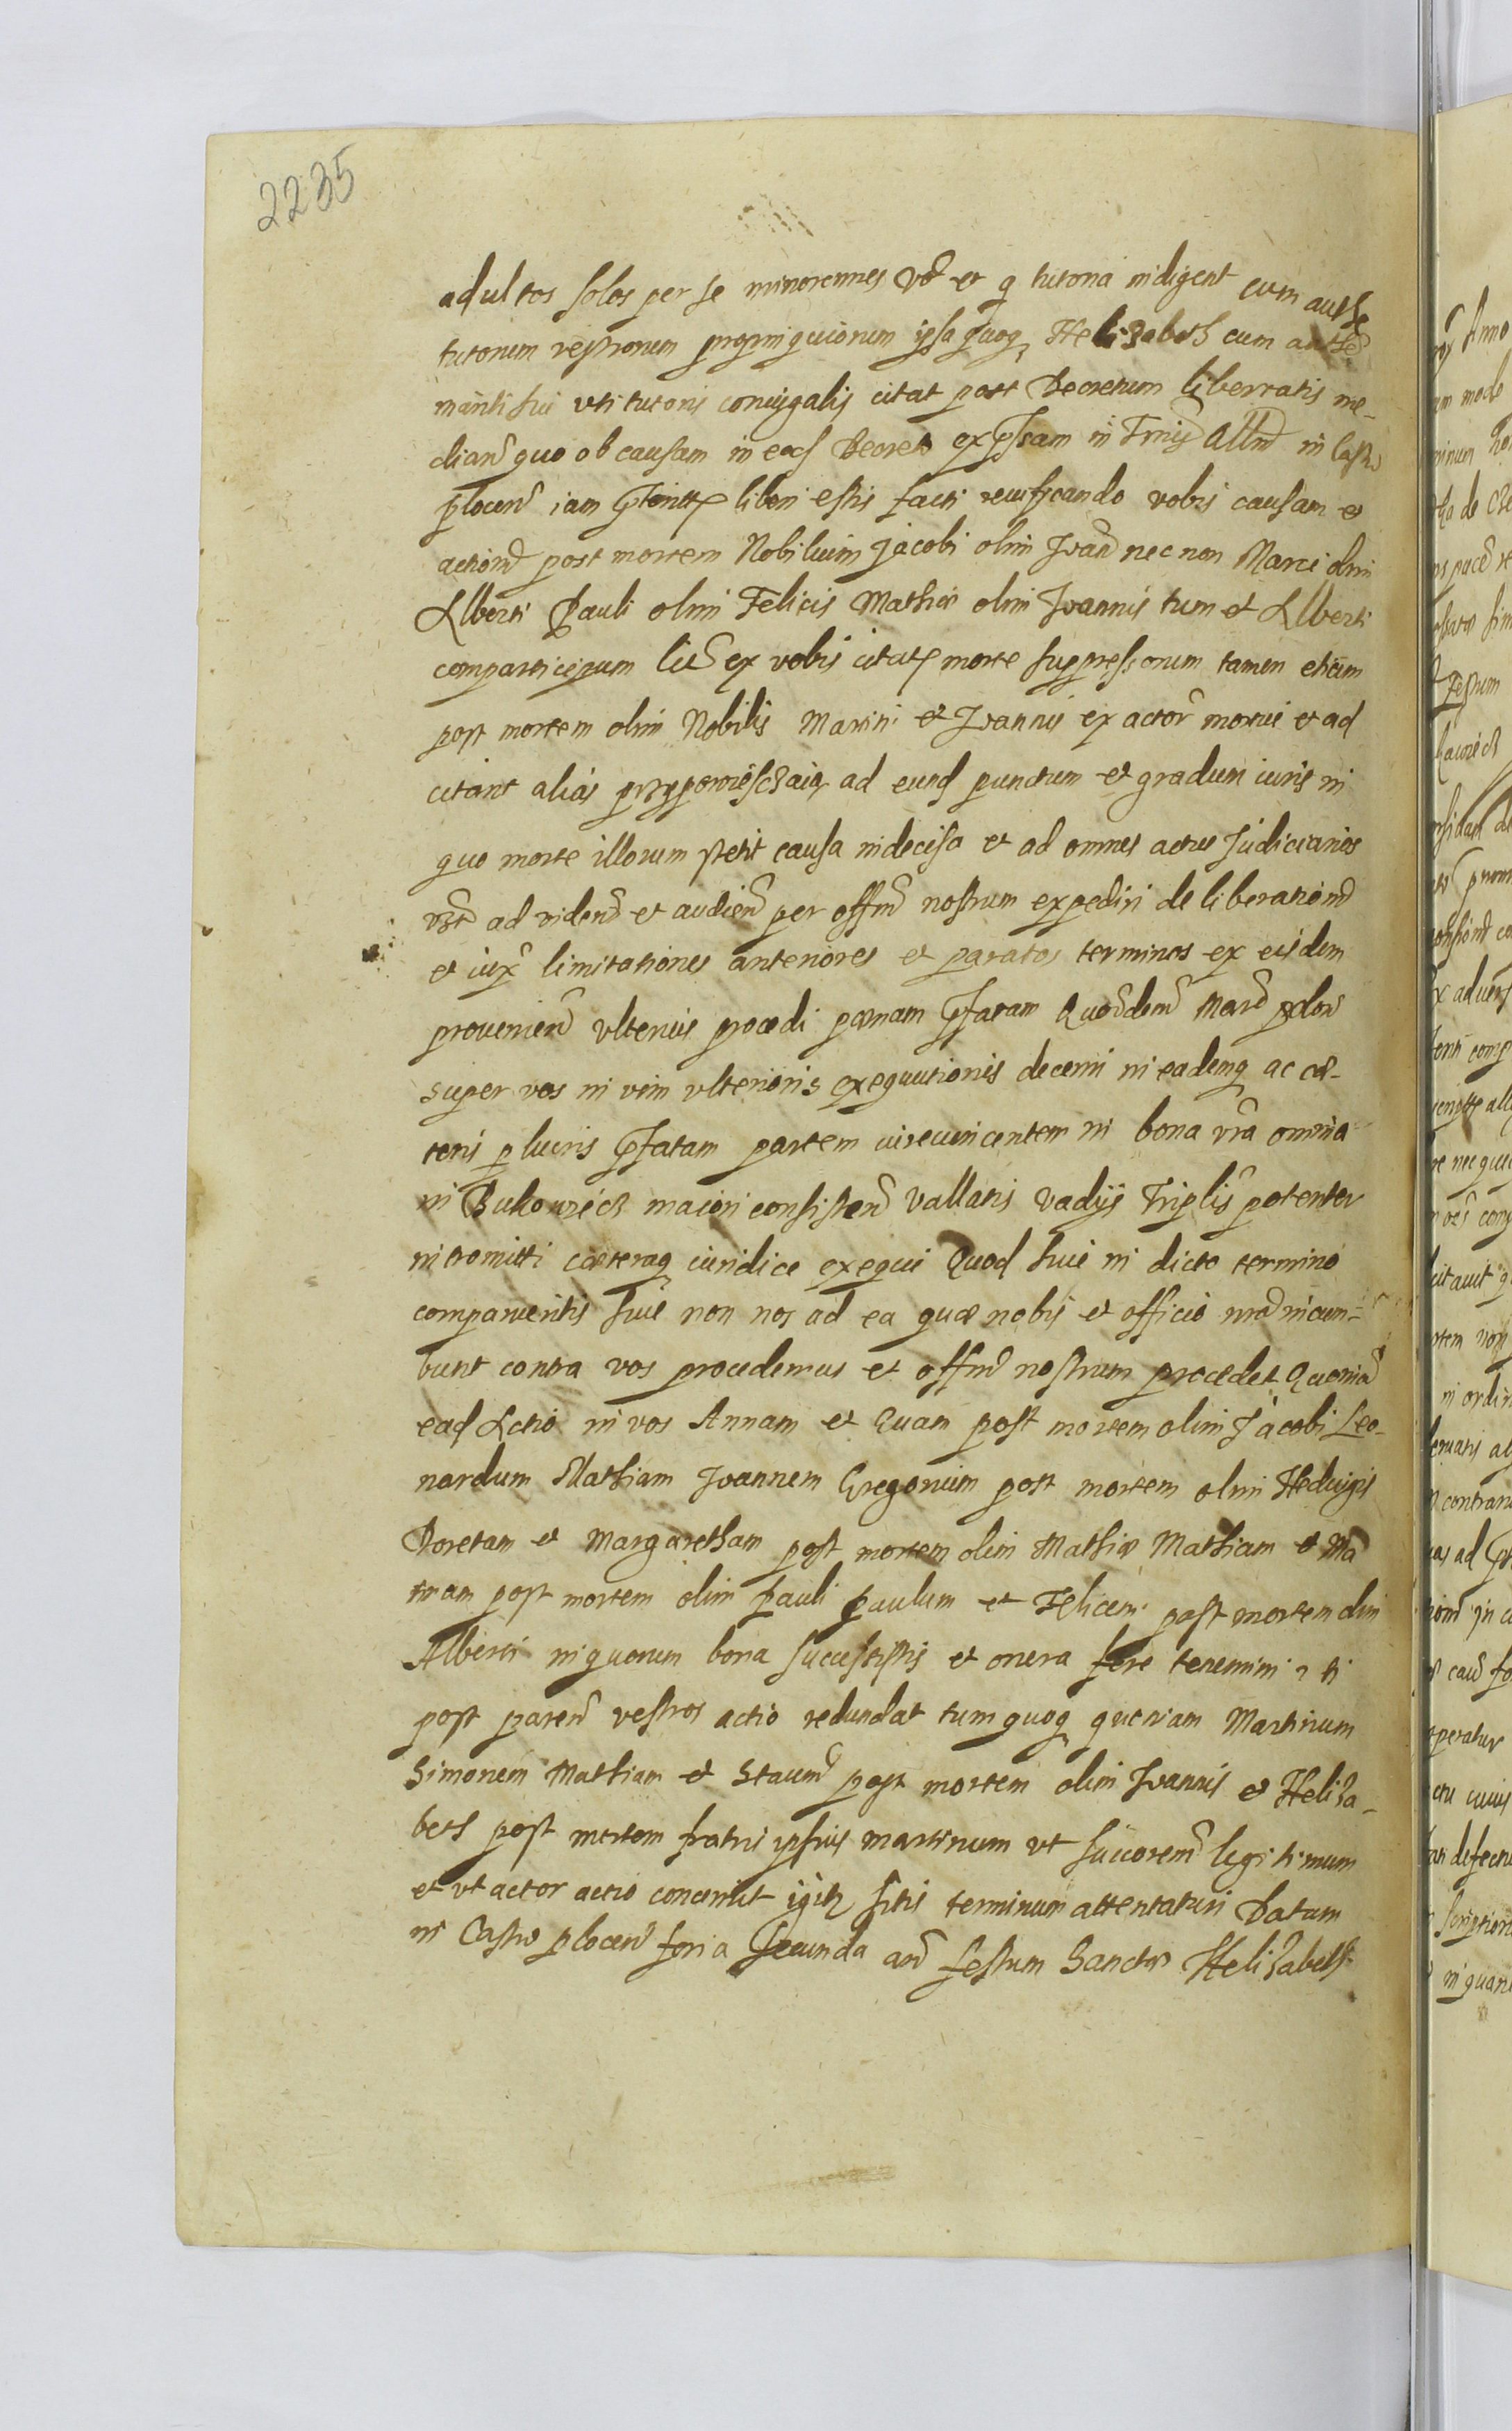 2235
adultos solos per se minorennes vō et q tutoria indigent cum authe
tutorum vestrorum propinquiorum ipsa quoq Helizabeth cum authē
mariti sui uti tutoris coniugalis citat post Decretum libertatis me-
dian quo ob causam in eod Decreto expssam in Trnis in Castro
plocen iam liberi estis facti reuificando vobis causam et
actionē post mortem Nobilium Jacobi olim Ioan nec non Marci olim
Alberti Pauli olim Felicis Mathiæ olim Ioannis tum et Alberti
comparticipum ex vobis citat morte suppressorum tamen etiam
post mortem olim Nobilis Marini et Ioannis ex actor mortui et ad
citant alias przypowiesczaią ad eund punctum et gradum iuris in
quo morte illorum stetit causa indecisa et ad omnes actus Judiciarios
ad videnđ et audienđ per offm nostrum expediri deliberationē
et iux limitationes anteriores et paratos terminos ex eisdem
prouenien vlterius procedi pœnam pfatam
super vos in vim vlterioris exequutionis decerni in eademq ac cæ-
teris p lucris pfatam partem iurevincentem in bona vra omnia
in Bukowiecz maiori consisten vallatis vadijs Triplis potenter
intromitti cæteraq iuridice exequi Quod siue in dicto termino
comparueritis siue non nos ad ea quæ nobis et officio nro incum-
bunt contra vos procedemus et offm nostrum procedet Quoniā
ead Actio in vos Annam et Euam post mortem olim Jacobi Leo-
nardum Mathiam Ioannem Gregorium post mortem olim Heduigis
Doretam et Margaretham post mortem olim Mathiæ Mathiam et Ma
post mortem olim Pauli Paulum et Felicem post mortem olim
Alberti in quorum bona successistis et onera fere tenemini
post paren vestros actio redundat tum quoq quoniam Martinum
Simonem Mathiam et post mortem olim Ioannis et Heliza-
beth post mortem fratris ipsius martinum ut succorem legitimum
et ut actor actio concernit igitr sitis terminum attentaturi Datum
in Castro plocen feria secunda an festum Sanctæ Helizabeth